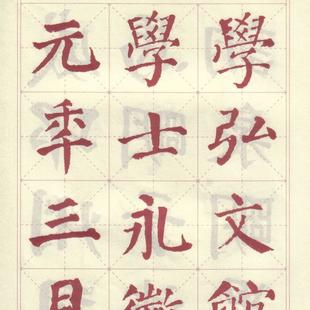 學弘文館
學士永徽
元年三月